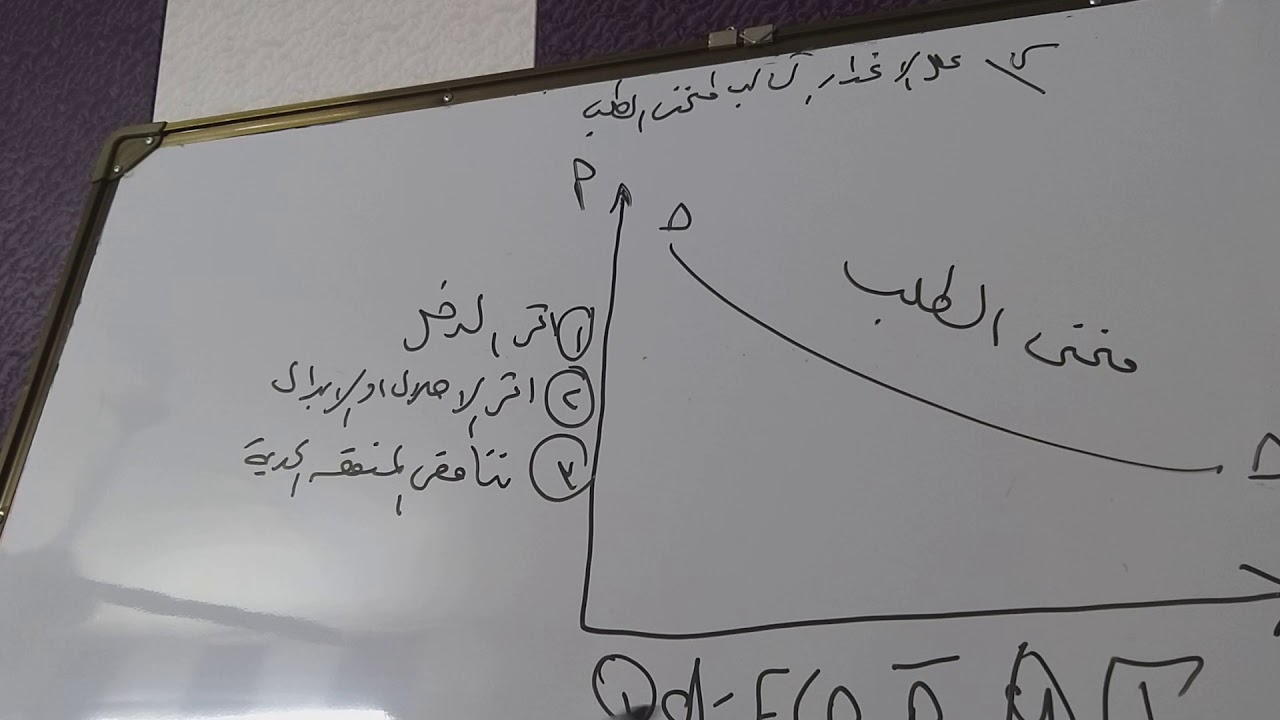 س/ علل الانحدار السالب لمنحنى الطلب
P
D
منحنى الطلب
① اثر الدخل
② اثر الاحلال او الابدال
③ تناقص المنفعه الحدية
D
① d = F (